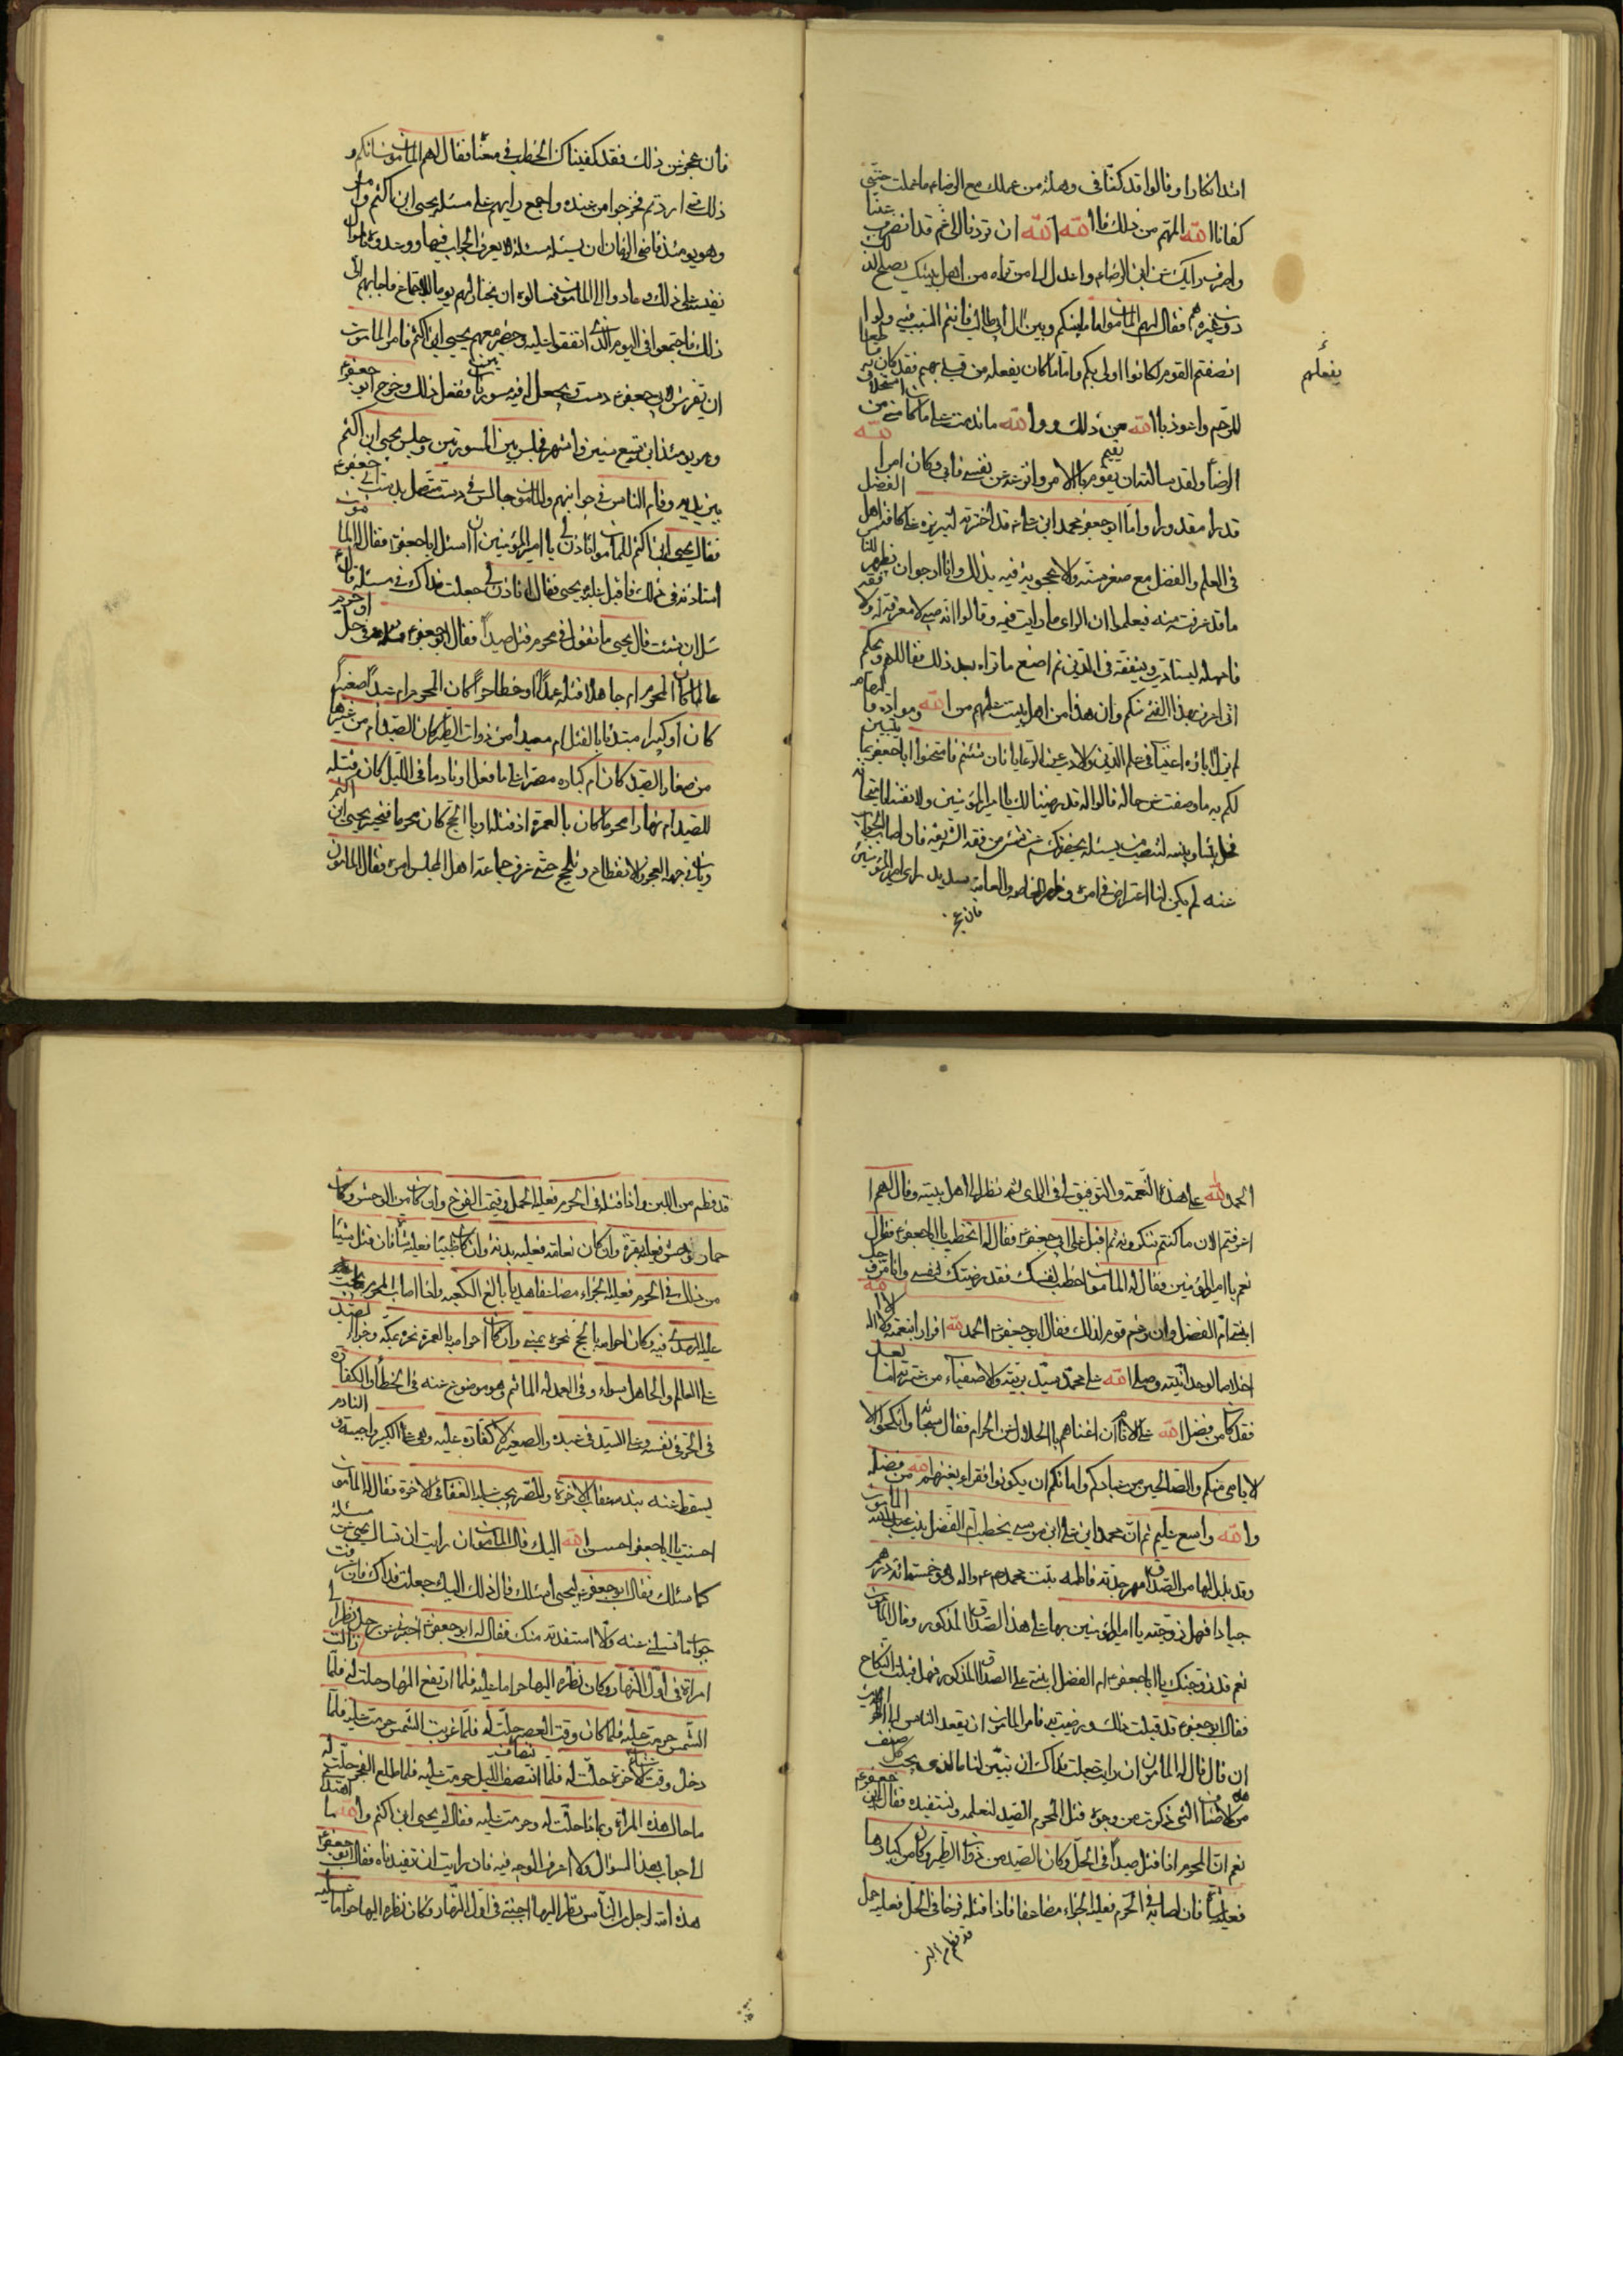 اشد انكارا وقالوا قد كنا فى وهلة من عملك مع الرضا ما عملت حتى
كفانا الله المهم من ذلك فالله الله ان تردنا الى غم قد انحسر عنا
واصرف رايك عن ابن الرضاء واعدل الى من تراه من اهل بيتك يصلح لذلك
دون غيره فقال لهم المامون اما ما بينكم وبين ال ابيطالب فانتم السبب فيه ولو
انصفتم القوم لكانوا اولى بكم واما ما كان يفعله من قبلى بهم فقد كان به قاطعا
يفعلهم
للرحم واعوذ بالله من ذلك ووالله ما ندمت على ما كان منى من استخلاف
الرضا ولقد سالته ان يقوم بالامر وانزعه عن نفسى فابى وكان امر الله
قدرا مقدورا واما ابو جعفر محمد ابن على قد اخترته لتبريزه على كافة اهل الفضل
فى العلم والفضل مع صغر سنه والاعجوبة فيه بذلك وانا ارجوا ان يظهر للناس
ما قد عرفته منه فيعلموا ان الراى ما رايت فيه وقالوا انه صبى لا معرفة له ولا فقه
فامهله ليتادب ويتفقه فى الدين ثم اصنع ما تراه بعد ذلك فقال لهم ويحكم
انى اعرف بهذا الفتى منكم وان هذا من اهل بيت علمهم من الله ومواده والهامه
لم يزل اباؤه اغنياء فى علم الدين والادب عن الرعايا فان شئتم فامتحنوا ابا جعفر بما يتبين
لكم به ما وصفت من حاله قالوا له قد رضينا لك يا امير المؤمنين ولانفسنا بامتحانه
فخل بيننا وبينه لننصب من يسئله بحضرتك عن شئ من فقه الشريعه فان اصاب الجواب
عنه لم يكن لنا اعتراض فى امره وظهر للخاصه والعامة سديد راى امير المؤمنين
فان عجز
فان عجز عن ذلك فقد كفيناك الخطب فى معناه فقال لهم المامون شانكم و
ذلك متى اردتم فخرجوا من عنده واجمع رايهم على مسئلة يحيى ابن اكثم
وهو يومئذ قاضى الزمان ان يسئله مسئلة لا يعرف الجواب فيها ووعدوه باموال
نفيسة على ذلك وعادوا الى المامون فسالوه ان يختار لهم يوما للاجتماع فاجابهم الى
ذلك فاجتمعوا فى اليوم الذى اتفقوا عليه وحضر معهم يحيى ابن اكثم فامر المامون
ان يفرش لابى جعفر ع دست ويجعل له فيه مسورتان ففعل ذلك وخرج ابو جعفر ع
وهو يومئذ ابن تسع سنين واشهر فجلس بين المسورتين وجلس يحيى ابن اكثم
بين يديه وقام الناس فى مراتبهم والمامون جالس فى دست متصل بدست ابى جعفر ع
فقال يحيى ابن اكثم للمامون اتاذن لى يا امير المؤمنين ان اسئل ابا جعفر فقال له المامون
استاذنه فى ذلك فاقبل عليه يحيى فقال له اتاذن لى جعلت فداك فى مسئلة قال ع
سل ان شئت قال يحيى ما تقول فى محرم قتل صيداً فقال ابو جعفر ع قتله فى حل او حرم
عالما كان المحرم ام جاهلا قتله عمداً او خطا حراً كان المحرم ام عبداً صغيرا
كان او كبيرا مبتدئا بالقتل ام معيدا من ذوات الطير كان الصيد ام من غيرها
من صغار الصيد كان ام كباره مصرا على ما فعل او نادما فى الليل كان قتله
للصيد ام نهارا محرما كان بالعمرة اذ قتله او بالحج كان محرما فتحير يحيى ابن اكثم
وبان فى وجهه العجز والانقطاع ولجلج حتى عرف جماعة اهل المجلس امره فقال المامون
الحمد لله على هذه النعمة والتوفيق لى فى الراى ثم نظر الى اهل بيته وقال لهم ا
عرفتم الان ما كنتم تنكرونه ثم اقبل على ابى جعفر ع فقال له اتخطب يا ابا جعفر ع فقال
نعم يا امير المؤمنين فقال له المامون اخطب لنفسك فقد رضيتك لنفسى وانا مزوجك
ابنتى ام الفضل وان رغم قوم لذلك فقال ابو جعفر ع الحمد لله اقرارا بنعمته ولا اله الا الله
اخلاصا لوحدانيته وصلى الله على محمد سيد بريته والاصفياء من عترته اما بعد
فقد كان من فضل الله على الانام ان اغناهم بالحلال عن الحرام فقال سبحانه وانكحوا ال
لايامى منكم والصالحين من عبادكم وامائكم ان يكونوا فقراء يغنهم الله من فضله
والله واسع عليم ثم ان محمد ابن على ابن موسى يخطب ام الفضل بنت عبدالله المامون
وقد بذل لها من الصداق مهر جدته فاطمه بنت محمد ص ع واله وهو خمسمائة درهم
جيادا فهل زوجته يا امير المؤمنين بها على هذا الصداق المذكور وقال المامون
نعم قد زوجتك يا ابا جعفر ع ام الفضل ابنتى على الصداق المذكور فهل قبلت النكاح
فقال ابو جعفر ع قد قبلت ذلك ورضيت به فامر المامون ان يقعد الناس
ان قال قال له المامون ان رايت جعلت فداك ان تبين لنا ما الذى يجب على كل صنف
من هذه الاصناف التى ذكرت من وجوه قتل المحرم الصيد لنعلمه ونستفيده فقال ابو جعفر ع
نعم ان المحرم اذا قتل صيداً فى الحل وكان الصيد من ذوات الطير وكان من كبارها
فعليه شاة فان اصابه فى الحرم فعليه الجزاء مضاعفا فاذا قتله فرخا فى الحل فعليه حمل
قد فطم من اللبن
قد فطم من اللبن واذا قتله فى الحرم فعليه الحمل وقيمت الفرخ وان كان من الوحش وكان
حمار وحش فعليه بقرة وان كان نعامة فعليه بدنة وان كان ظبيا فعليه شاة فان قتل شيئا
من ذلك فى الحرم فعليه الجزاء مضاعفا هديا بالغ الكعبه واذا اصاب المحرم ما يجب
عليه الهدى فيه وكان احرامه بالحج نحره بمنى وان كان احرامه بالعمرة نحره بمكه وجزاء الصيد
على العالم والجاهل سواء وفى العمد له الماثم وهو موضوع عنه فى الخطأ والكفارة
فى الحر فى نفسه وعلى السيد فى عبده والصغير لا كفارة عليه وهى على الكبير واجبة والنادم
يسقط عنه بندمه عقاب الاخرة والمصر يجب عليه العقاب فى الاخرة فقال له المامون
احسنت يا ابا جعفر احسن الله اليك قال المامون ان رايت ان تسال يحيى عن مسئلة
كما سئلك فقال ابو جعفر ع ليحيى اسئلك قال ذلك اليك جعلت فداك فان عرفت
جواب ما تسئلنى عنه والا استفدته منك فقال له ابو جعفر ع اخبرنى عن رجل نظر الى
امراة فى اول النهار وكان نظره اليها حراما عليه فلما ارتفع النهار حلت له فلما زالت
الشمس حرمت عليه فلما كان وقت العصر حلت له فلما غربت الشمس حرمت عليه فلما
دخل وقت عشاء الاخرة حلت له فلما انتصف الليل حرمت عليه فلما طلع الفجر حلت له
ما حال هذه المراة وبماذا حلت له وحرمت عليه فقال له يحيى ابن اكثم والله ما اهتدى
الى جواب هذا السؤال ولا اعرف الوجه فيه فان رايت ان تفيدناه فقال ابو جعفر ع
هذه امة لرجل من الناس نظر اليها اجنبى فى اول النهار وكان نظره اليها حراما عليه